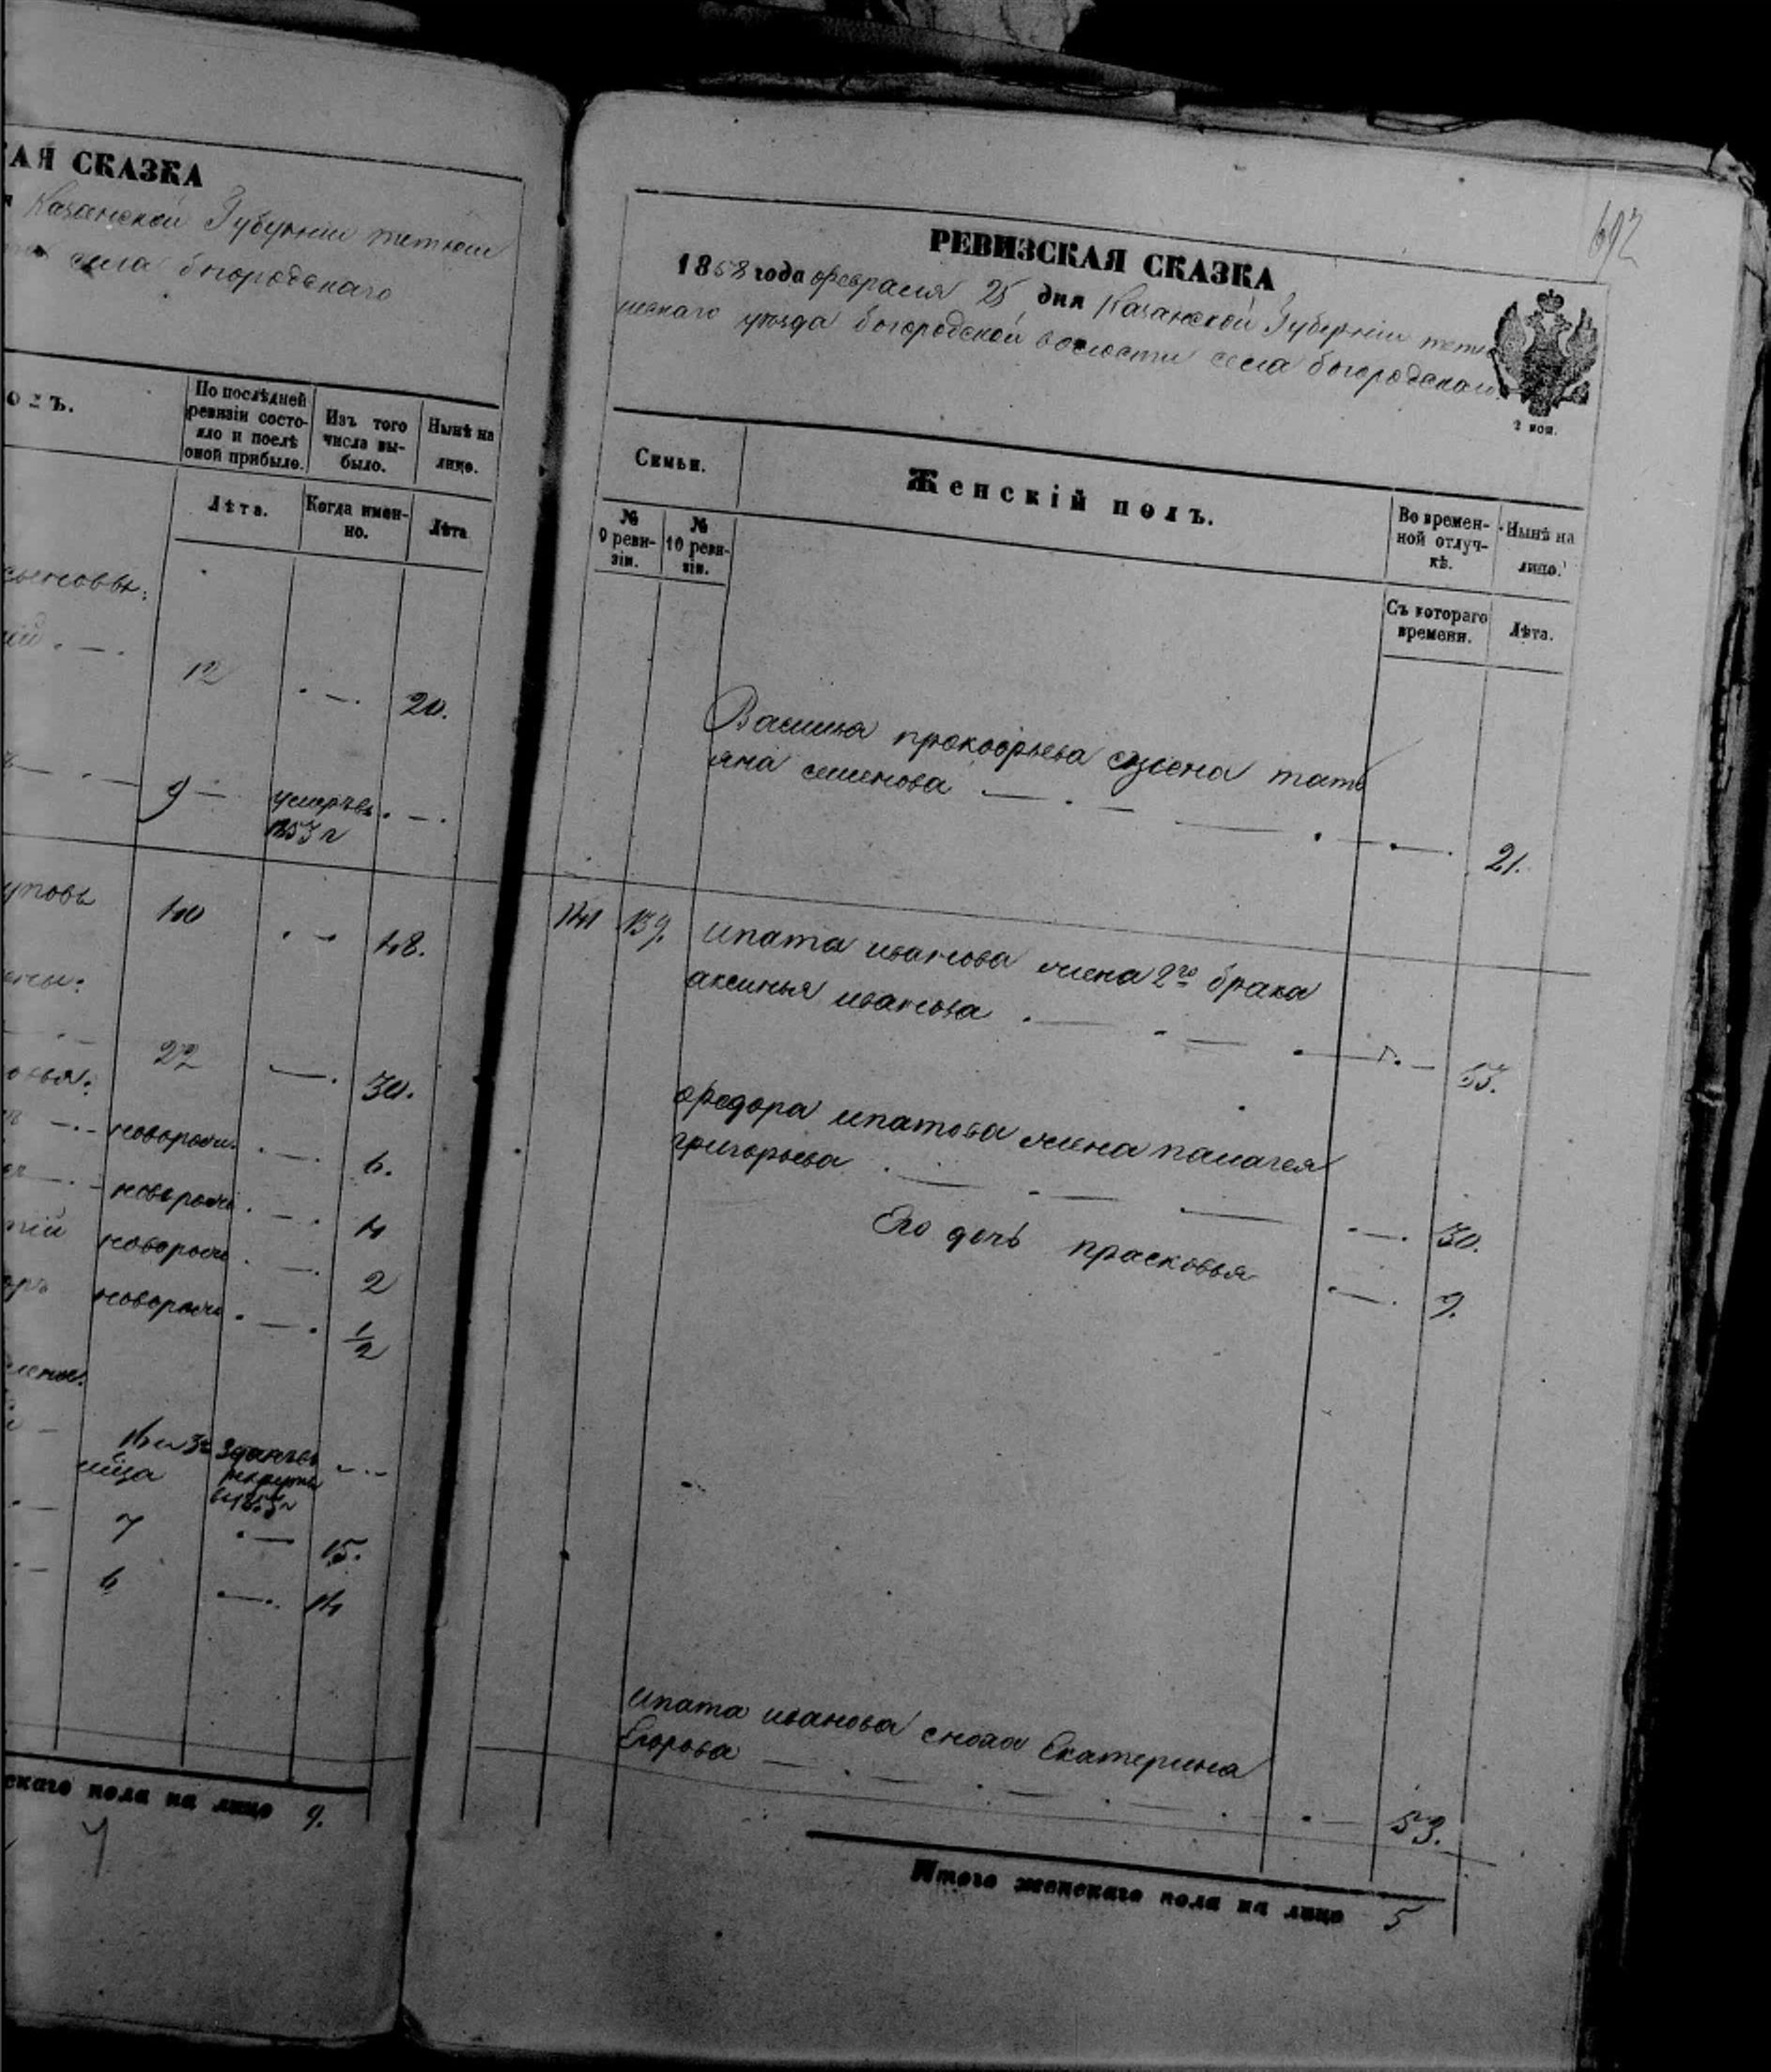 АЯ СКАЗКА
Казанской Губернии тетюш
села богородскаго
По послѣдней
ревизіи состо-
яло и послѣ
оной прибыло.
Изъ того
числа вы-
было.
Нынѣ на
лицо.
Лѣта.
Когда имен-
но.
Лѣта
сыновья:
12 20.
9 умеръ въ
1853 г
40 48.
22 30.
новорожд. 6.
новорожд 4
новорожд 2
новорожд 1/2
16 и 3 Зданъ въ
рекруты
в 1853 г
7 15.
6 14
скаго пола на лицо 9.
7
692
РЕВИЗСКАЯ СКАЗКА
1858 года февраля 25 дня Казанской Губернии тетю
шскаго уѣзда богородской волости села богородскаго
2 коп.
Семьи.
Женскій полъ.
Во времен-
ной отлуч-
кѣ.
Нынѣ на
лицо.
№
9 реви-
зіи.
№
10 реви-
зіи.
Съ котораго
времени.
Лѣта.
Василья прокофьева жена тать
яна семенова 21.
141 139. ипата иванова жена 2го брака
аксинья иванова 53.
федора ипатова жена палагея
григорьева 30.
Его дочь прасковья 9.
ипата иванова сноха Екатерина
Егорова 53.
Итого женскаго пола на лицо 5